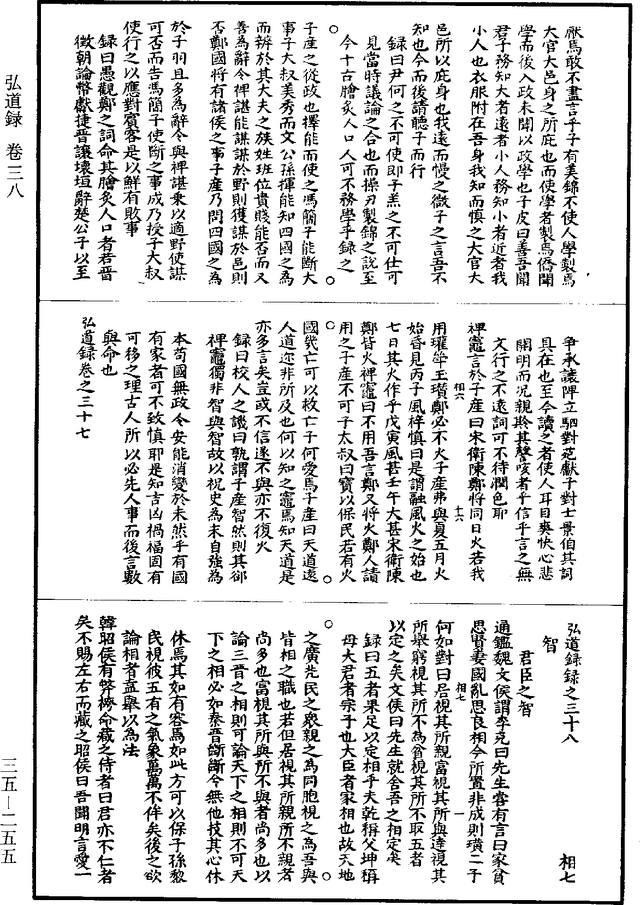 弘道録　卷三八
厭焉敢不盡言乎子有美錦不使人學製焉
大官大邑身之所庇也而使學者製焉僑聞
學而後入政未聞以政學也子皮曰善吾聞
君子務知大者遠者小人務知小者近者我
小人也衣服附在吾身我知而慎之大官大
邑所以庇身也我遠而慢之微子之言吾不
知也今而後請聽子而行
錄曰尹何之不可使即子羔之不可仕可
見當時議論之合也而操刃製錦之說至
今千古膾炙人口人可不務學乎錄之
○
子產之從政也擇能而使之馮簡子能斷大
事子大叔美秀而文公孫揮能知四國之為
而辨於其大夫之族姓班位貴賤能否而又
善為辭令裨諶能謀謀於野則獲謀於邑則
否鄭國將有諸侯之事子產乃問四國之為
於子羽且多為辭令與裨諶乘以適野使謀
可否而告馮簡子使斷之事成乃授子大叔
使行之以應對賓客是以鮮有敗事
錄曰愚觀鄭之詞命其膾炙人口者若晉
徵朝論幣獻捷晉讓壞垣辭楚公子以至
爭承讓陴立駟對范獻子對士景伯其詞
具在也至今讀之者使人耳目爽快心悲
開明而況親聆其謦咳者乎信乎言之無
文行之不遠詞可不待潤色耶
○
裨竈言於子產曰宋衛陳鄭將同日火若我
相六
用瓘斝玉瓚鄭必不火子產弗與夏五月火
十六
始昏見丙子風梓慎曰是謂融風火之始也
七日其火作乎戊寅風甚壬午大甚宋衛陳
鄭皆火裨竈曰不用吾言鄭又將火鄭人請
用之子產不可子太叔曰寶以保民若有火
國幾亡可以救亡子何愛焉子產曰天道遠
人道邇非所及也何以知之竈焉知天道是
亦多言矣豈或不信遂不與亦不復火
錄曰校人之譏曰孰謂子產智然則其卻
裨竈獨非智與智故以祝史為末自強為
本苟國無政令安能消變於未然乎有國
有家者可不致慎耶是知言凶禍福固有
可移之理古人所以必先人事而後言數
與命也
弘道録卷之三十七
弘道録録之三十八
相七
智
君臣之智
通鑑魏文侯謂李克曰先生嘗有言曰家貧
思賢妻國亂思良相今所置非成則璜二子
相七　一
何如對曰居視其所親富視其所與達視其
所舉窮視其所不為貧視其所不取五者
以定之矣文侯曰先生就舍吾之相定矣
錄曰五者果足以定相乎夫乾稱父坤稱
母大君者宗子也大臣者家相也故天地
之廣兆民之衆親之為同胞視之為吾與
皆相之職也若但居視其所親所不親者
尚多也富視其所與所不與者尚多也以
論三晉之相則可論天下之相則不可天
下之相必如秦晉斷斷兮無他技其心休
休焉其如有容焉如此方可以保子孫黎
民視彼五有之氣象萬萬不侔矣後之欲
論相者盍舉以為法
○
韓昭侯有弊袴命藏之侍者曰君亦不仁者
矣不賜左右而藏之昭侯曰吾聞明言愛一
三五—二五五